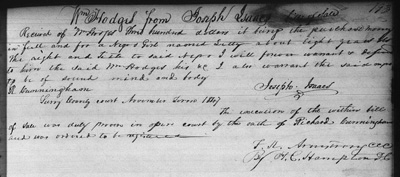 Wm Hodges from Joseph Isaacs
Received of Wm Hodges five hundred dollars it being the purchase money
in full and for a Negro Girl named Letty about eight years old
the right and title to said Negro I will forever warrant & defend
to him the said Wm Hodges his &c I also warrant the said negro
to be of sound mind and body
R Cunningham Joseph Isaacs
Surry County court November Term 1847
The execution of the within bill
of sale was duly proven in open court by the oath of Richard Cunningham
and was ordered to be registered
F. K. Armstrong CCC
By H. C. Hampton D.C.